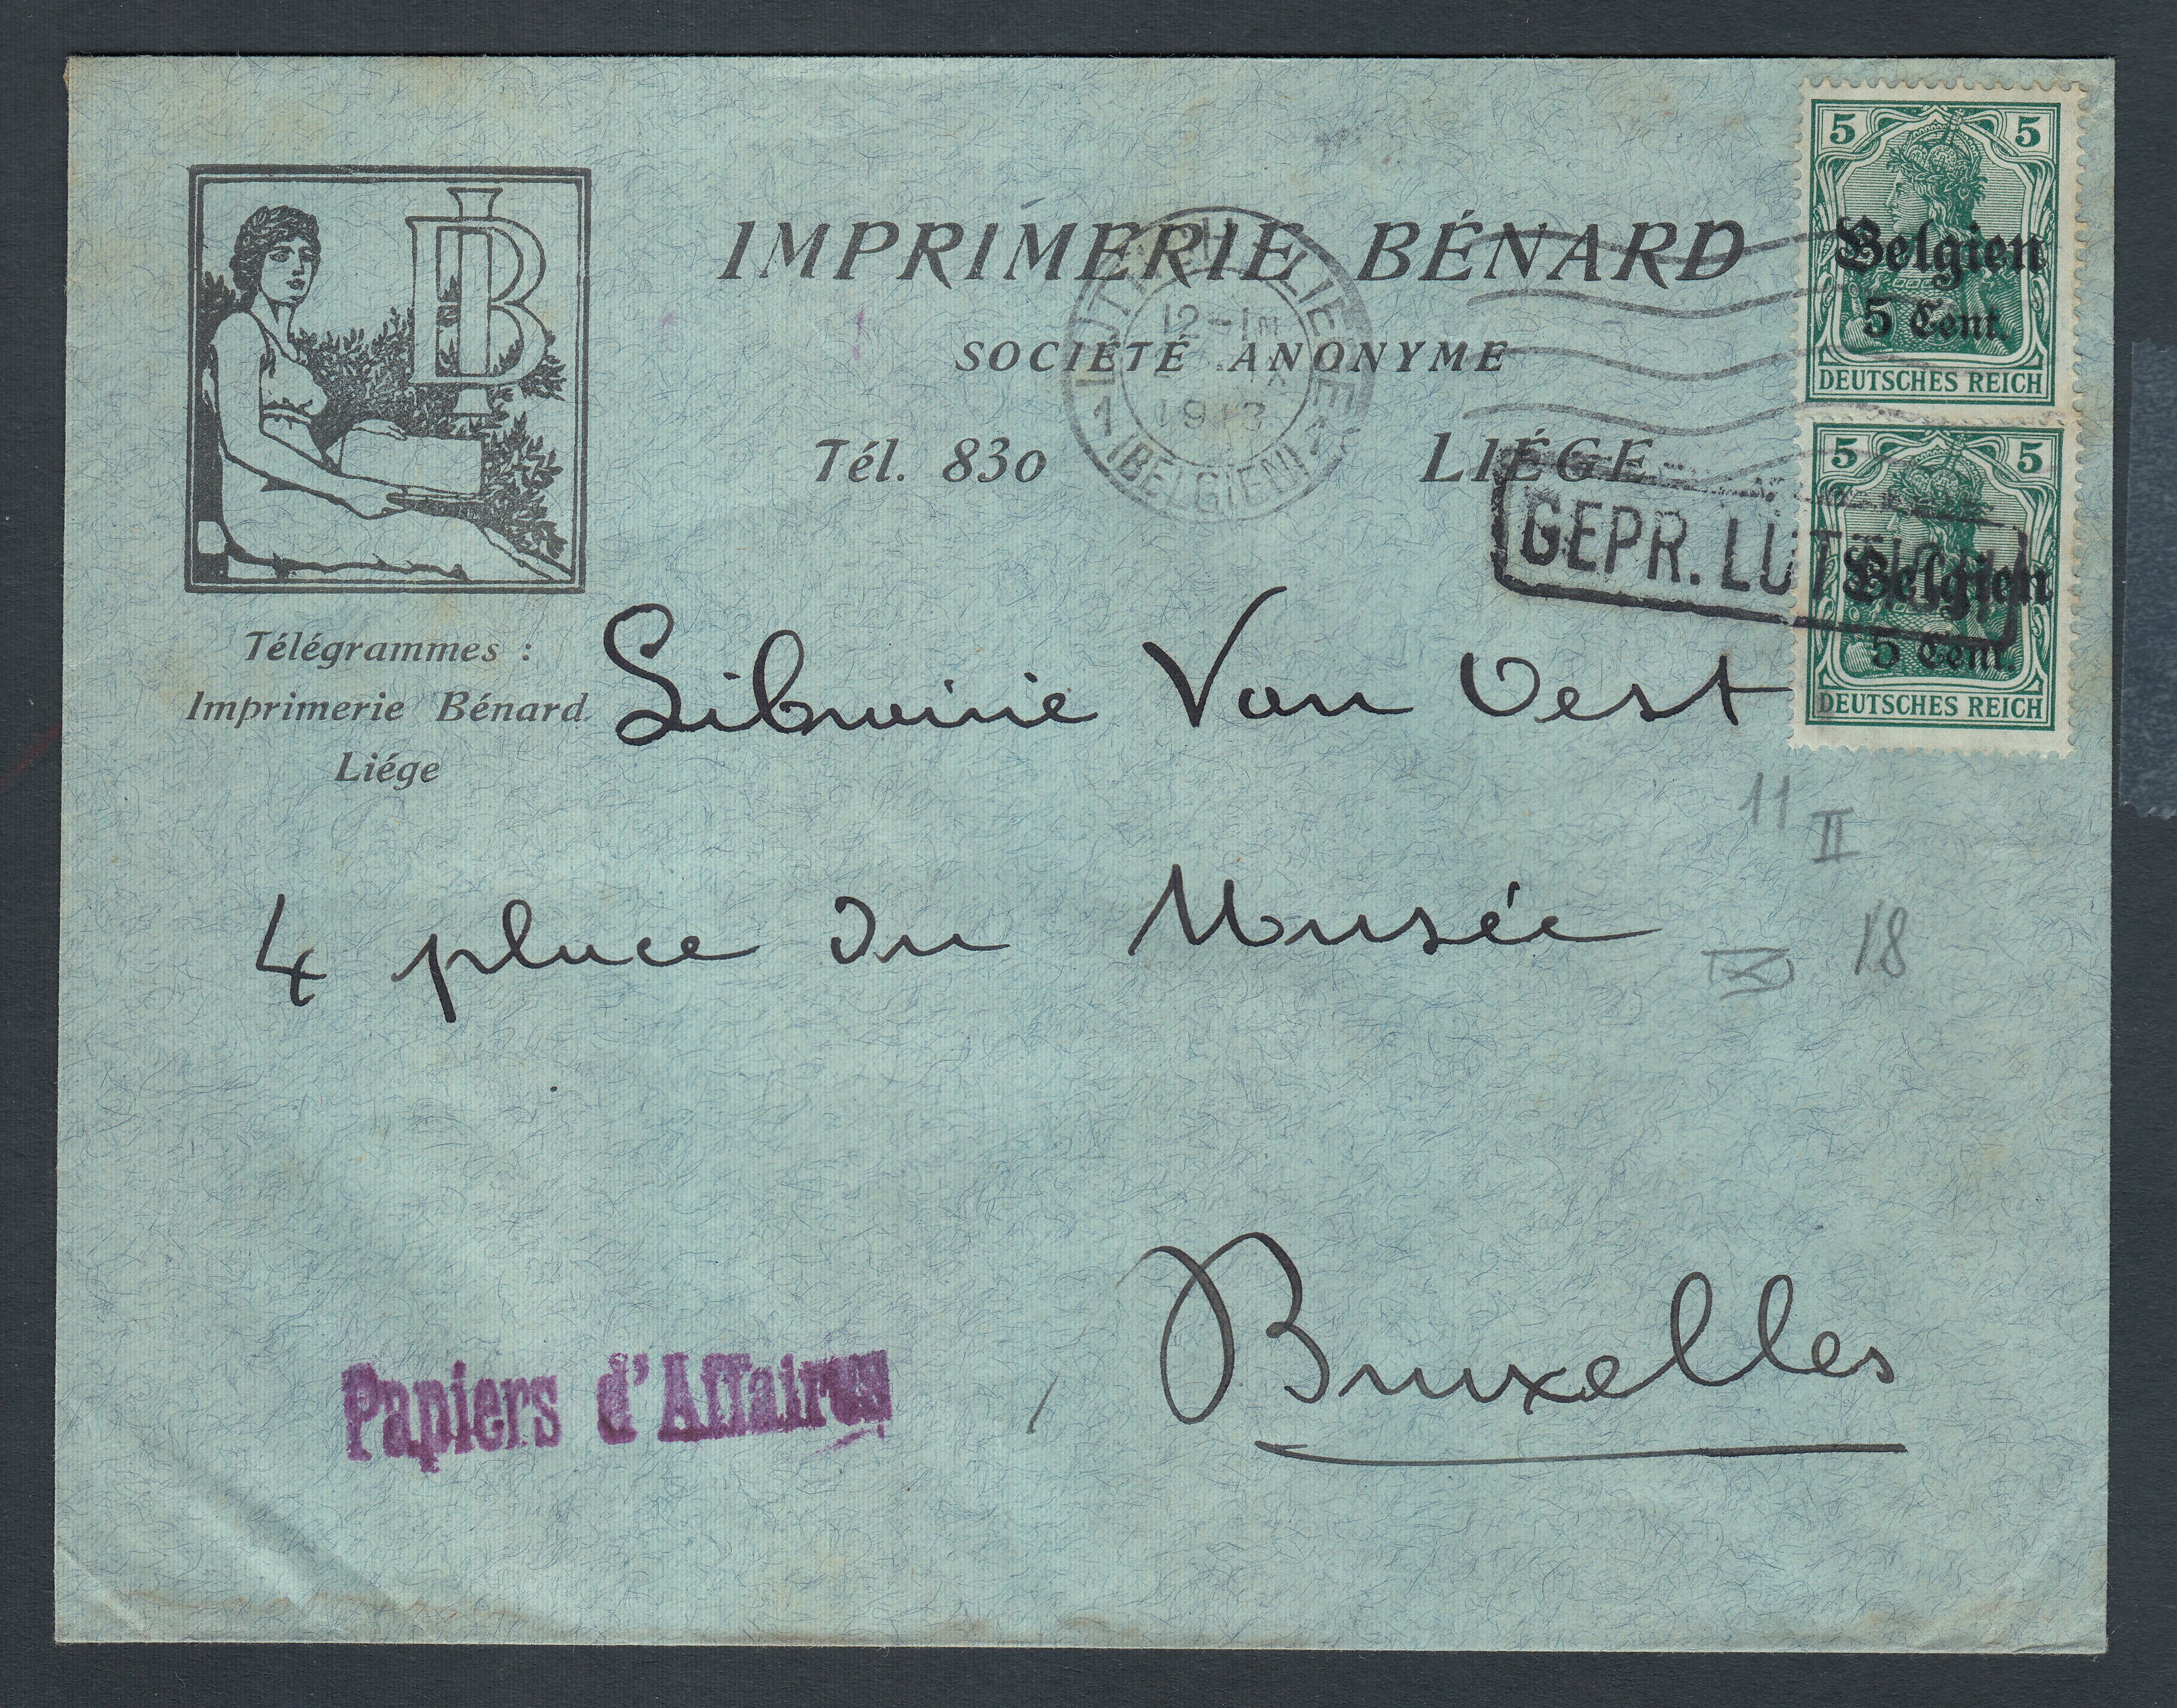 IMPRIMERIE BÉNARD
SOCIÉTÉ ANONYME
Tél. 830 LIÉGE
LB
Télégrammes :
Imprimerie Bénard
Liége
5 5
Belgien
5 Cent.
DEUTSCHES REICH
5 5
Belgien
5 Cent.
DEUTSCHES REICH
12-1
1 (BELGIEN) 1
GEPR. LÜTTICH
Librairie Van Oest
4 place du Musée
Bruxelles
11
II
18
Papiers d'Affaires